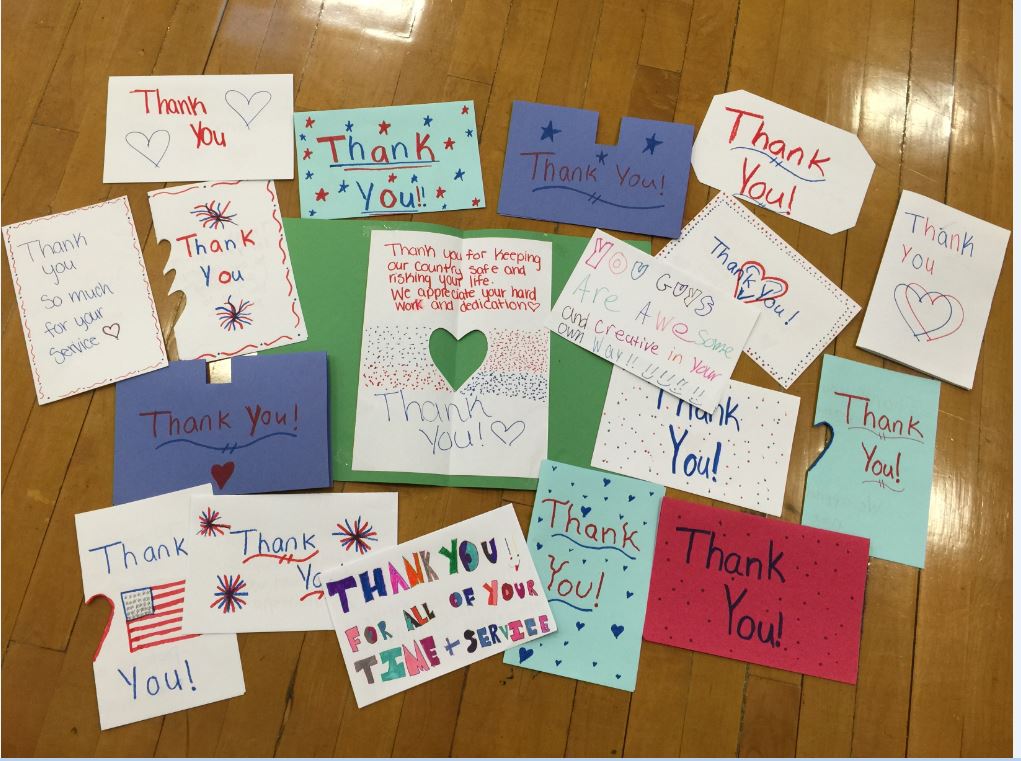 Thank
You
Thank
You!!
Thank You!
Thank
You!
Thank
you
so much
for your
service
Thank
You
Thank you for keeping
our country safe and
risking your life.
We appreciate your hard
work and dedication
Thank
you!
You Guys
Are Awesome
and creative in your
own way!!!!!!!
Thank You!
Thank
you
Thank You!
Thank
You!
Thank
You!
Thank
You!
Thank
Yo
THANK YOU!
FOR ALL OF YOUR
TIME + SERVICE
Thank
You!
Thank
You!